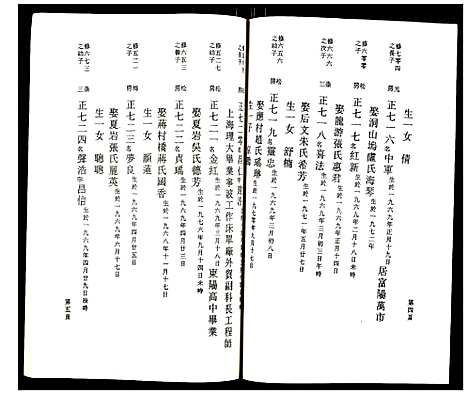 生一女 倩
修七零四
之長子
正七一六 名中軍 生於一九六九年三月十六日 居富陽萬市
娶洞山塢盧氏海琴 生於一九七二年
修六零零
之長子
正七一七 名紅新 生於一九六九年二月十八日未時
娶龍游張氏惠君
修六五六
之次子
正七一八 名善法 生於一九六九年三月三日午時
娶后文朱氏希芳 生於一九七一年五月廿七日
生一女 舒楠
正七一九 名靈忠 生於一九六九年三月初八日
娶應村趙氏瑤琳
第四頁
上海理大畢業事設工作床單廠外貿副科長工程師
修五二七
之幼子
正七二一 名金紅 生於一九六九年三月十八日 東陽高中畢業
娶夏岩吳氏德芳 生於一九七六年九月十四日未時
修六五三
之幼子
正七二二 名貞瑤 生於一九六九年四月初四日
娶蔣村橋蔣氏國香 生於一九六九年十月十七日
生一女 顏蓮
修五二一
之幼子
正七二三 名夢良 生於一九六九年四月廿日
娶夏岩張氏麗英 生於一九六九年六月十七日
生一女 聰聰
修六七三
之幼子
正七二四 名聲浩 字昌信 生於一九六九年四月廿九日辰時
第五頁